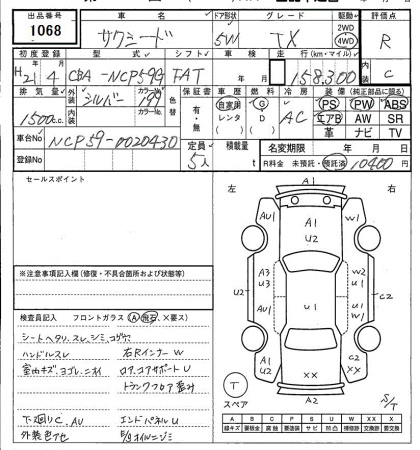 出品番号 車名 ドア形状 グレード 駆動 評価点
1068 サクシード 5W TX 2WD 4WD R
初度登録 型式 シフト 車検 走行(km・マイル) 外装
H21 4 CBA-NCP59G FAT 158300 内装 C
排気量 外装 カラーNo. 色替 保証書 車歴 燃料 冷房 装備(純正部品に限る)
1500c.c. シルバー 199 有・無 自家用 レンタ G D AC PS PW ABS
内装 カラーNo. エアB AW SR
革 ナビ TV
車台No NCP59-0020430 定員 積載量 名変期限 年 月 日
登録No 5人 t R料金 未預託・預託済 10400円
セールスポイント
左 右
A1
U2
AU1
W1
A3
U3
U2
U1
U1
W2
U1
C2
A1
U2
XX
C2
XX
A2
スペア
T
S/T
※注意事項記入欄(修復・不具合箇所および状態等)
検査員記入 フロントガラス(A 飛石、×要ス)
シートヘタリ、スレ、シミ、コゲ穴
ハンドルスレ 右Rインナー W
室内キズ、ヨゴレ、ニオイ ロア、コアサポートU
トランクフロア歪み
下廻りC、AU エンドパネルU
外装色アセ E/gオイルニジミ
A B C P S U W X XX
線キズ 要板金 腐食 要塗装 サビ 凹凸 補修跡 要交換 交換跡